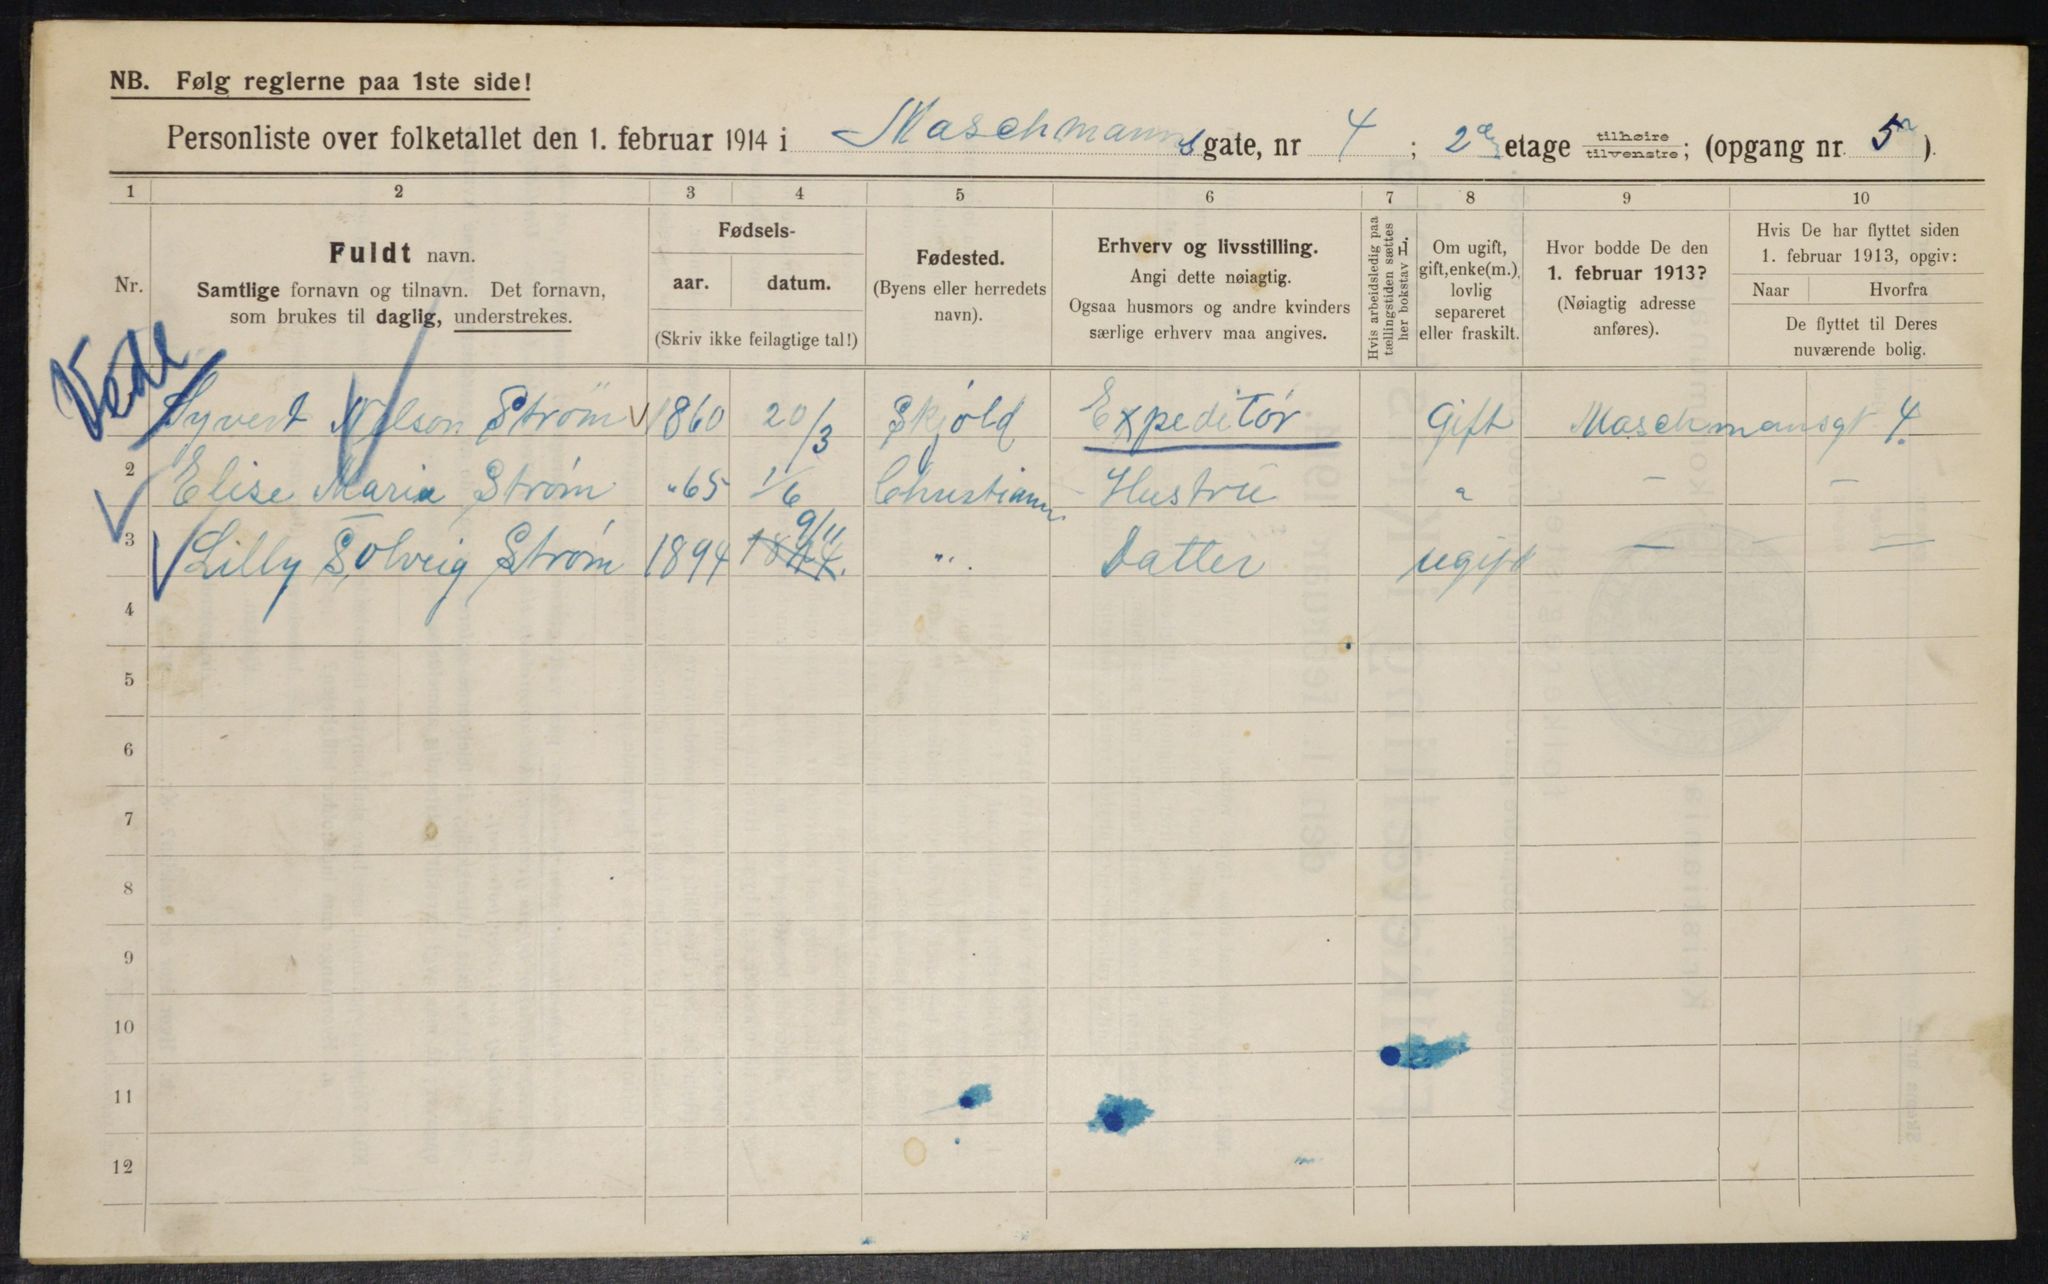 NB. Følg reglerne paa 1ste side!
Personliste over folketallet den 1. februar 1914 i Maschmanns gate, nr 4 ; 2den etage tilhøire / tilvenstre; (opgang nr. 5 ).
1 2 3 4 5 6 7 8 9 10
Nr.
Fuldt navn.
Samtlige fornavn og tilnavn. Det fornavn,
som brukes til daglig, understrekes.
Fødsels-
aar. datum.
(Skriv ikke feilagtige tal!)
Fødested.
(Byens eller herredets
navn).
Erhverv og livsstilling.
Angi dette nøiagtig.
Ogsaa husmors og andre kvinders
særlige erhverv maa angives.
Hvis arbeidsledig paa
tællingstiden sættes
her bokstav L.
Om ugift,
gift, enke(m.),
lovlig
separeret
eller fraskilt.
Hvor bodde De den
1. februar 1913?
(Nøiagtig adresse
anføres).
Hvis De har flyttet siden
1. februar 1913, opgiv:
Naar Hvorfra
De flyttet til Deres
nuværende bolig.
Syvert Nilson Strøm 1860 20/3 Skjold Expeditør Gift Maschmansgt 4.
2 Elise Maria Strøm " 65 1/6 Christiania Hustru " – –
3 Lilly Solveig Strøm 1894 9/11 ". Datter ugift – – –
4
5
6
7
8
9
10
11
12